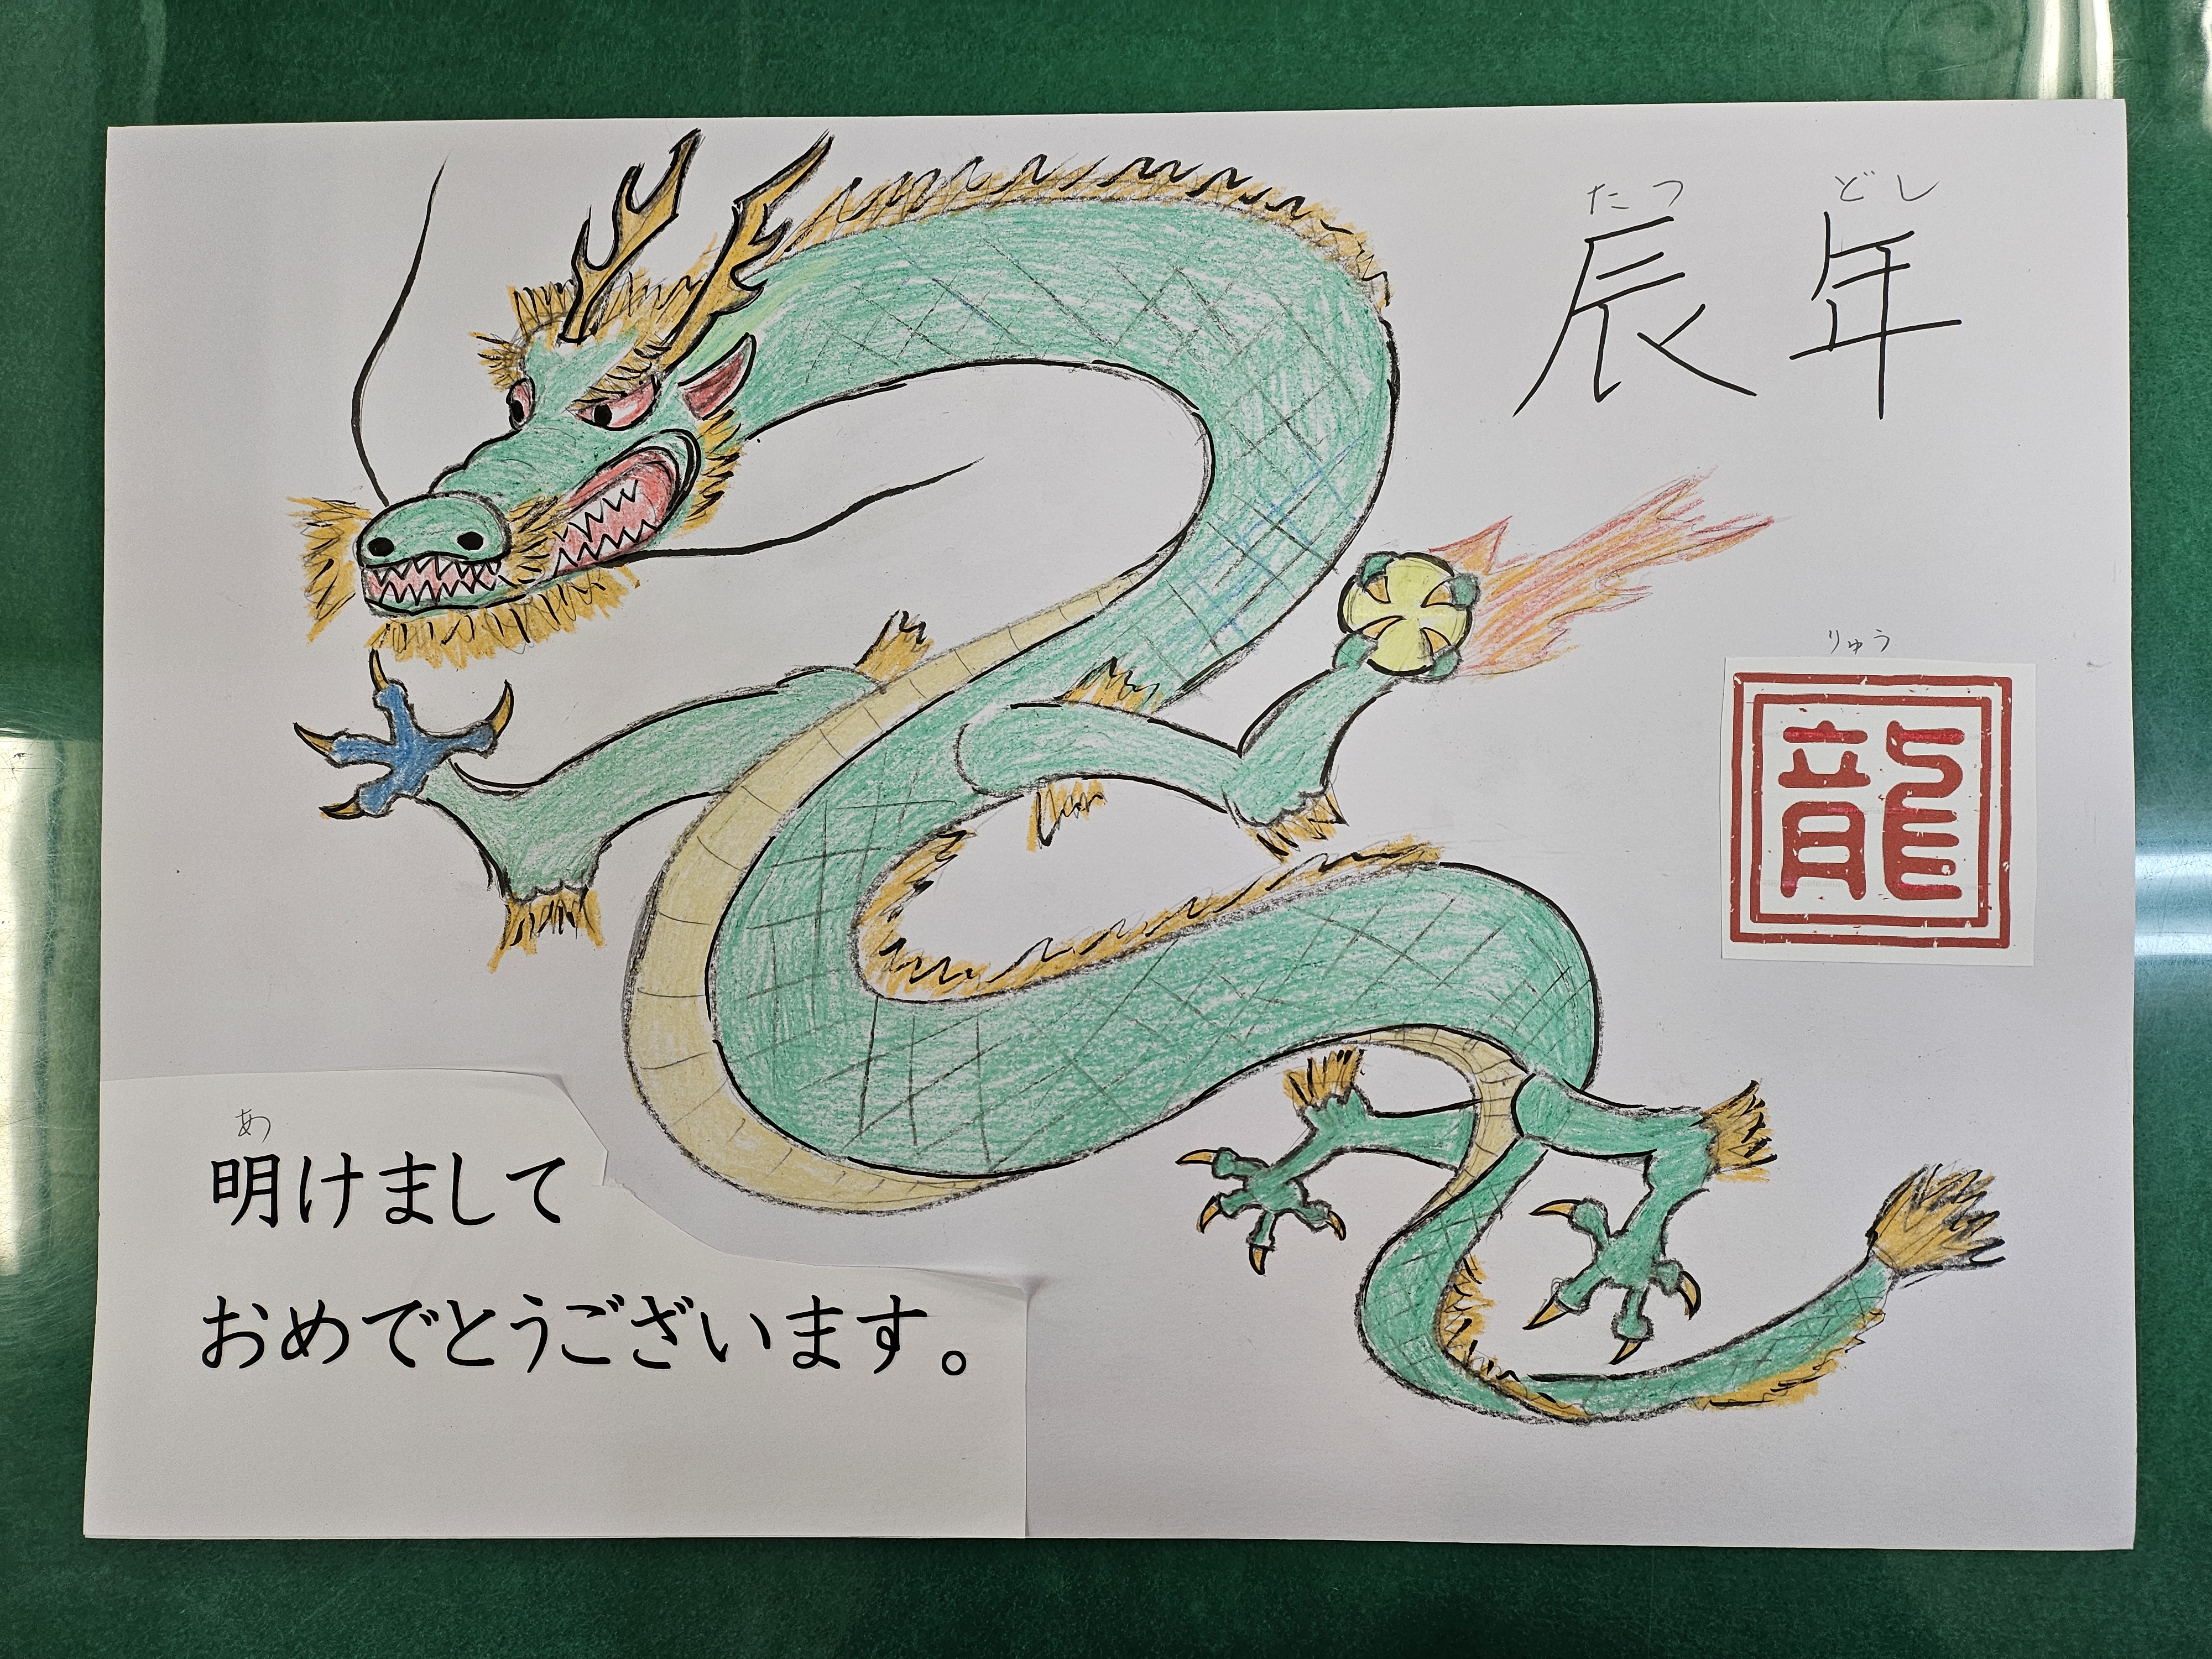 たつ どし
辰年
りゅう
龍
あ
明けまして
おめでとうございます。